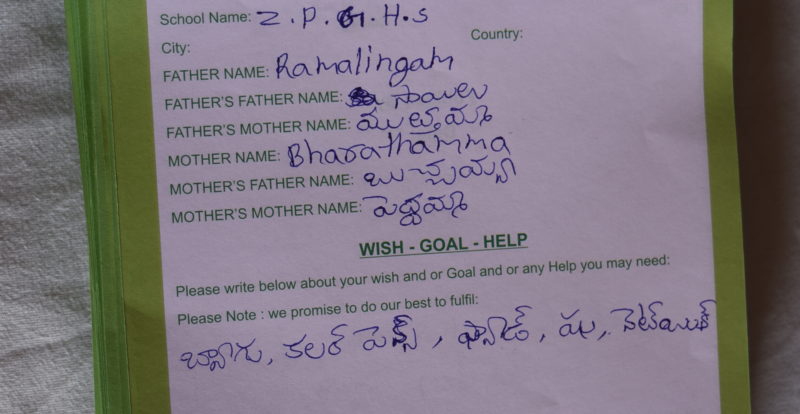 School Name: Z.P.G.H.S
City: Country:
FATHER NAME: Ramalingam
FATHER'S FATHER NAME: సాయిలు
FATHER'S MOTHER NAME: ముత్తమ్మ
MOTHER NAME: Bharathamma
MOTHER'S FATHER NAME: బుచ్చయ్య
MOTHER'S MOTHER NAME: పెద్దమ్మ
WISH - GOAL - HELP
Please write below about your wish and or Goal and or any Help you may need:
Please Note : we promise to do our best to fulfil:
బ్యాగు, కలర్ పెన్స్, ప్యాడ్, షు,